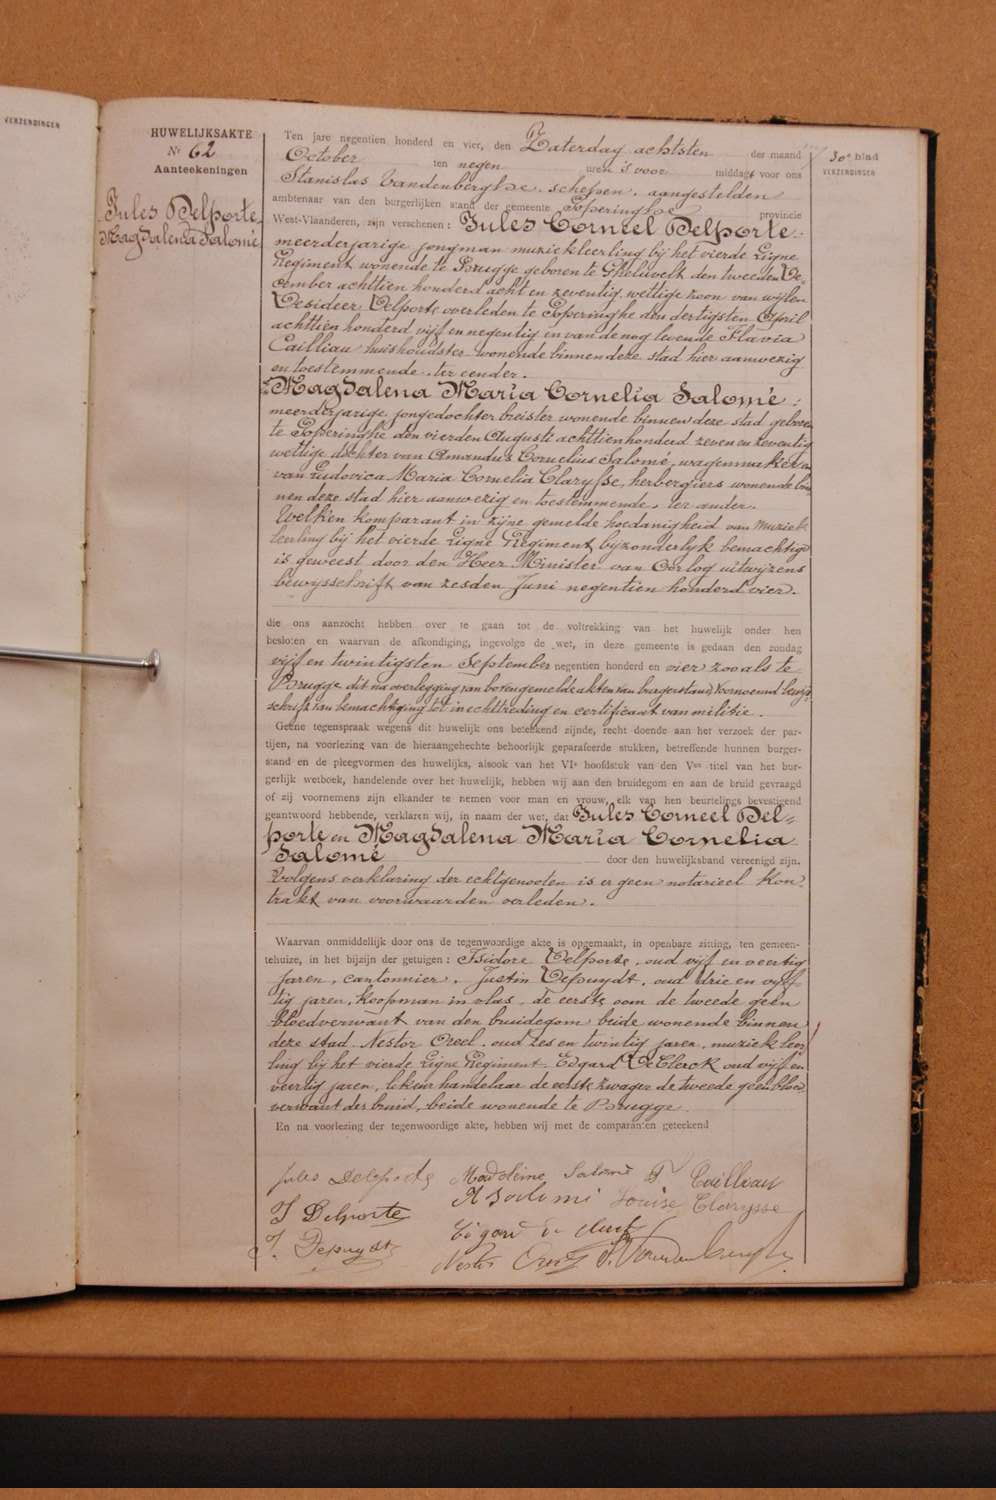 VERZENDINGEN
HUWELIJKSAKTE
Nr 62
Aanteekeningen
Jules Delporte
Magdalena Salomé
30e blad
VERZENDINGEN
Ten jare negentien honderd en vier, den Zaterdag achtsten der maand
October ten negen uren 's voor middags voor ons
Stanislas Vandenberghe, schepen, aangestelden
ambtenaar van den burgerlijken stand der gemeente Poperinghe provincie
West-Vlaanderen, zijn verschenen : Jules Corneel Delporte
meerderjarige jongman muziekleerling bij het vierde Ligne
Regiment wonende te Brugge geboren te Gheluvelt den tweeden De-
cember achttien honderd acht en zeventig, wettige zoon van wijlen
Desideer Delporte overleden te Poperinghe den dertigsten April
achttien honderd vijf en negentig en van de nog levende Flavia
Cailliau huishoudster wonende binnen deze stad hier aanwezig
en toestemmende. ter eender.
Magdalena Maria Cornelia Salomé
meerderjarige jongedochter breister wonende binnen deze stad geboren
te Poperinghe den vierden Augusti achttienhonderd zeven en zeventig
wettige dochter van Amandus Cornelius Salomé, wagenmaker en
van Ludovica Maria Cornelia Clarysse, herbergiers wonende bin-
nen deze stad hier aanwezig en toestemmende. ter ander.
Welken komparant in zijne gemelde hoedanigheid van muziek
leerling bij het vierde Ligne Regiment, bijzonderlyk bemachtigd
is geweest door den Heer Minister van Oorlog uitwijzens
bewijsschrift van zesden Juni negentien honderd vier.
die ons aanzocht hebben over te gaan tot de voltrekking van het huwelijk onder hen
besloten en waarvan de afkondiging, ingevolge de wet, in deze gemeente is gedaan den zondag
vijf en twintigsten September negentien honderd en vier zooals te
Brugge dit na overlegging van bovengemelde akten van burgerstand, voornoemd bewijs-
schrift van bemachtiging tot in echttreding en certificaat van militie.
Geene tegenspraak wegens dit huwelijk ons beteekend zijnde, recht doende aan het verzoek der par-
tijen, na voorlezing van de hieraangehechte behoorlijk geparafeerde stukken, betreffende hunnen burger-
stand en de pleegvormen des huwelijks, alsook van het VIe hoofdstuk van den Ven titel van het bur-
gerlijk wetboek, handelende over het huwelijk, hebben wij aan den bruidegom en aan de bruid gevraagd
of zij voornemens zijn elkander te nemen voor man en vrouw, elk van hen beurtelings bevestigend
geantwoord hebbende, verklaren wij, in naam der wet, dat Jules Corneel Del=
porte en Magdalena Maria Cornelia
Salomé door den huwelijksband vereenigd zijn.
Volgens verklaring der echtgenooten is er geen notarieel Kon-
trakt van voorwaarden verleden.
Waarvan onmiddellijk door ons de tegenwoordige akte is opgemaakt, in openbare zitting, ten gemeen-
tehuize, in het bijzijn der getuigen : Isidore Delporte, oud vijf en veertig
jaren, cantonnier, Justin Depuydt, oud drie en vijf-
tig jaren, koopman in vlas, de eerste oom de tweede geen
bloedverwant van den bruidegom beide wonende binnen
deze stad. Nestor Creel, oud zes en twintig jaren, muziekleer-
ling bij het vierde Ligne Regiment. Edgard De Clerck oud vijf en
veertig jaren, likeurhandelaar de eerste zwager de tweede geen bloed-
verwant der bruid, beide wonende te Brugge
En na voorlezing der tegenwoordige akte, hebben wij met de comparanten geteekend
Jules Delporte Madeleine Salomé F. Cailliau
A Salomé Louise Clarysse
I Delporte
Edgard De Clerck
J. Depuydt
Nestor Creel S. Vandenberghe